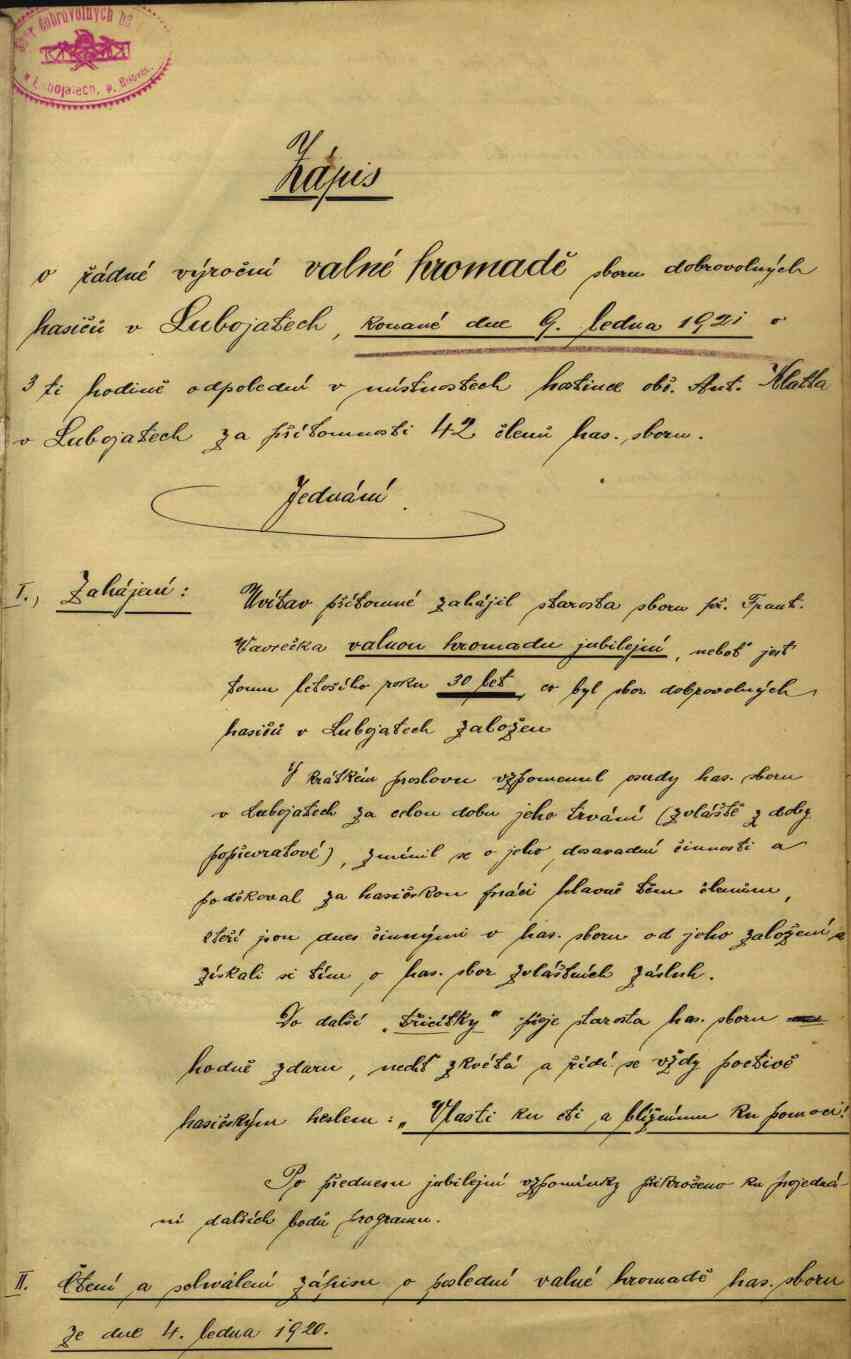 Sbor dobrovolných
v Lubojatech, p. Brušov.
Zápis
o řádné výroční valné hromadě sboru dobrovolných
hasičů v Lubojatech, konané dne 9. ledna 1921 o
3 tí hodině odpolední v místnostech hostince obč. Ant. Klatla
v Lubojatech za přítomnosti 42 členů has. sboru.
Jednání.
I., Zahájení: Uvítav přítomné zahájil starosta sboru př. Frant.
Vavrečka valnou hromadu jubilejní, neboť jest
tomu letošího roku 30 let, co byl sbor dobpovolných
hasičů v Lubojatech založen
V krátkém proslovu vzpomenul osudy has. sboru
v Lubojatech za celou dobu jeho trvání (zvláště z doby
popřevratové), zmínil se o jeho dosavadní činnosti a
poděkoval za hasičskou práci hlavně těm členům,
kteří jsou dnes činnými v has. sboru od jeho založení a
získali si tím o has. sbor zvláštních zásluh.
Do další „třicítky" přeje starosta has. sboru
hodně zdaru, nechť zkvétá a řídí se vždy poctivě
hasičským heslem: „Vlasti ku cti a bližnímu ku pomoci!
Po přednesu jubilejní vzpomínky přikročeno ku projedná-
ní dalších bodů programu.
II. Čtení a schválení zápisu o poslední valné hromadě has. sboru
ze dne 4. ledna 1920.